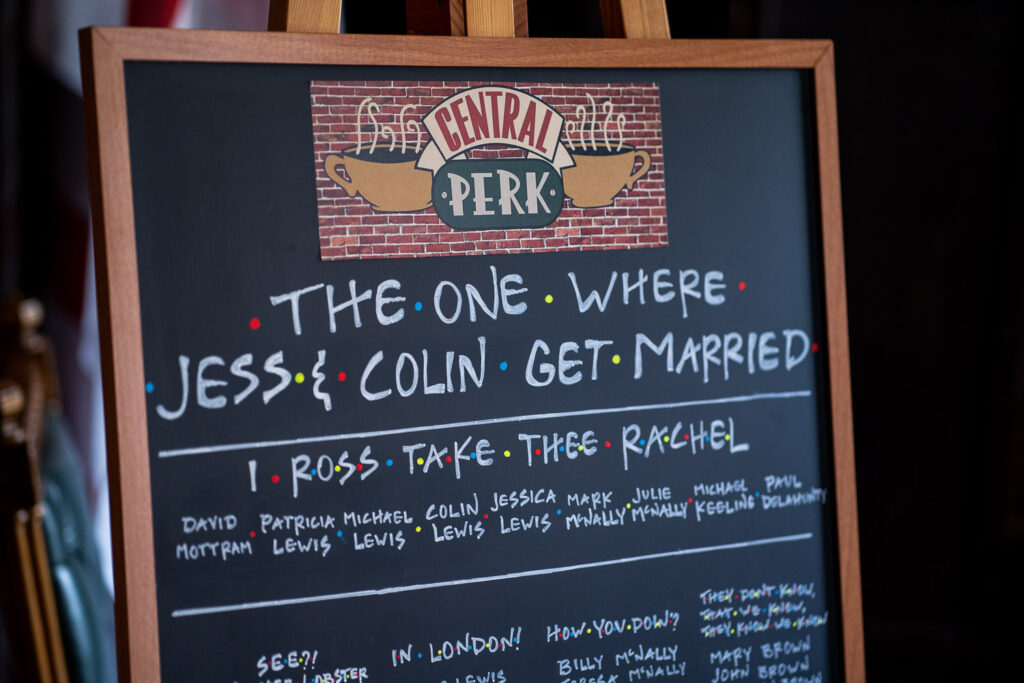 CENTRAL
PERK
THE · ONE · WHERE ·
JESS & COLIN · GET · MARRIED
I · ROSS · TAKE · THEE · RACHEL
DAVID MOTTRAM · PATRICIA LEWIS · MICHAEL LEWIS · COLIN LEWIS · JESSICA LEWIS · MARK McNALLY · JULIE McNALLY · MICHAEL KEELING · PAUL DELAHUNTY
SEE?!
LOBSTER
IN LONDON!
LEWIS
HOW YOU DOW?
BILLY McNALLY
McNALLY
THEY DON'T KNOW,
THAT WE KNOW,
THEY KNOW WE KNOW
MARY BROWN
JOHN BROWN
BROWN